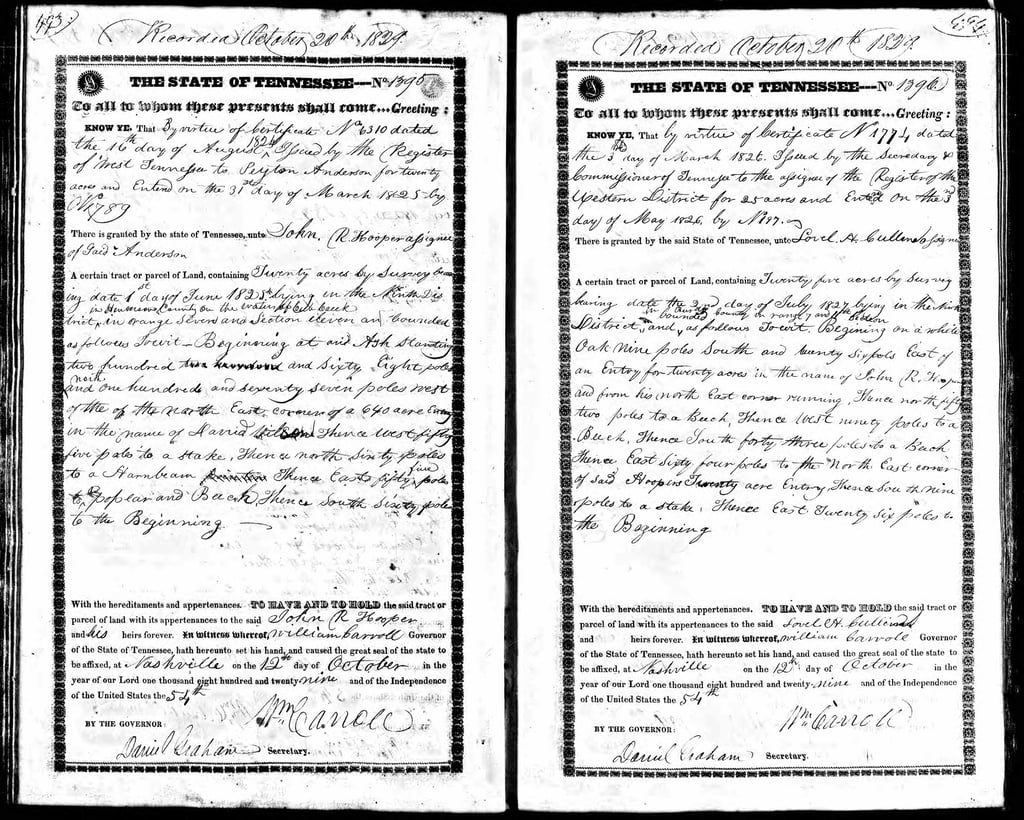 493
Recorded October 20th 1829
THE STATE OF TENNESSEE----No. 1395
To all to whom these presents shall come...Greeting:
KNOW YE, That By virtue of Certificate No 6310 dated
the 16th day of August 1824 Issued by the Register
of West Tennessee to Peyton Anderson for twenty
acres and Entered on the 31st day of March 1825 by
No 1789
There is granted by the state of Tennessee, unto John R. Hooper assignee
of said Anderson
A certain tract or parcel of Land, containing Twenty acres by Survey bear
ing date 1st day of June 1825 lying in the Ninth Dis
in Henderson County on the waters of Cub Creek
trict, in range Seven and Section Eleven and bounded
as follows Towit - Beginning at an Ash Standing
two hundred and Sixty Eight poles
north
and one hundred and seventy seven poles West
of the of the North East corner of a 640 acre Entry
in the name of David Thence West fifty
five poles to a stake, Thence north Sixty poles
to a Hornbeam Thence East fifty five poles
to a poplar and Beech, Thence South Sixty poles
to the Beginning
With the hereditaments and appertenances. TO HAVE AND TO HOLD the said tract or
parcel of land with its appertenances to the said John R Hooper
and his heirs forever. In witness whereof, William Carroll Governor
of the State of Tennessee, hath hereunto set his hand, and caused the great seal of the state to
be affixed, at Nashville on the 12th day of October in the
year of our Lord one thousand eight hundred and twenty-nine and of the Independence
of the United States the 54th
Wm Carroll
BY THE GOVERNOR:
Daniel Graham Secretary.
494
Recorded October 20th 1829
THE STATE OF TENNESSEE----No. 1396
To all to whom these presents shall come...Greeting:
KNOW YE, That by virtue of Certificate N 1774 dated
the 3rd day of March 1826. Issued by the Secretary &
Commissioner of Tennessee to the assignee of the Register of the
Western District for 25 acres and Entered on the 3rd
day of May 1826, by No 17.
There is granted by the said State of Tennessee, unto Lovel H. Cullen assignee
A certain tract or parcel of Land, containing Twenty five acres by Survey
bearing date the 2nd day of July 1827 lying in the Ninth
in County in range 7 and 11th Section
District, and bounded as follows Towit. Begining on a white
Oak nine poles South and twenty six pols East of
an Entry for twenty acres in the name of John R. Hooper
and from his north East corner running, Thence north fifty
two poles to a Beech, Thence West ninety poles to a
Beech, Thence South forty three poles to a Beech
Thence East Sixty four poles to the North East corner
of said Hoopers Twenty acre Entry, Thence South nine
poles to a stake, Thence East Twenty Six poles to
the Beginning
With the hereditaments and appertenances. TO HAVE AND TO HOLD the said tract or
parcel of land with its appertenances to the said Lovel H. Cullen
and heirs forever. In witness whereof, William Carroll Governor
of the State of Tennessee, hath hereunto set his hand, and caused the great seal of the state to
be affixed, at Nashville on the 12th day of October in the
year of our Lord one thousand eight hundred and twenty-nine and of the Independence
of the United States the 54th
Wm Carroll
BY THE GOVERNOR:
Daniel Graham Secretary.